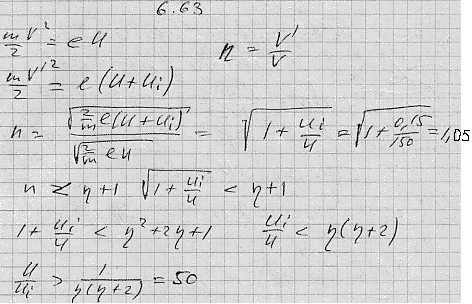 6.63
mv²/2 = eU    n = v'/v
mv'²/2 = e(U + Ui)
n = √(2/m e(U + Ui)) / √(2/m eU) = √(1 + Ui/U) = √(1 + 0,15/150) = 1,05
n < η + 1    √(1 + Ui/U) < η + 1
1 + Ui/U < η² + 2η + 1    Ui/U < η(η + 2)
U/Ui > 1/η(η + 2) = 50